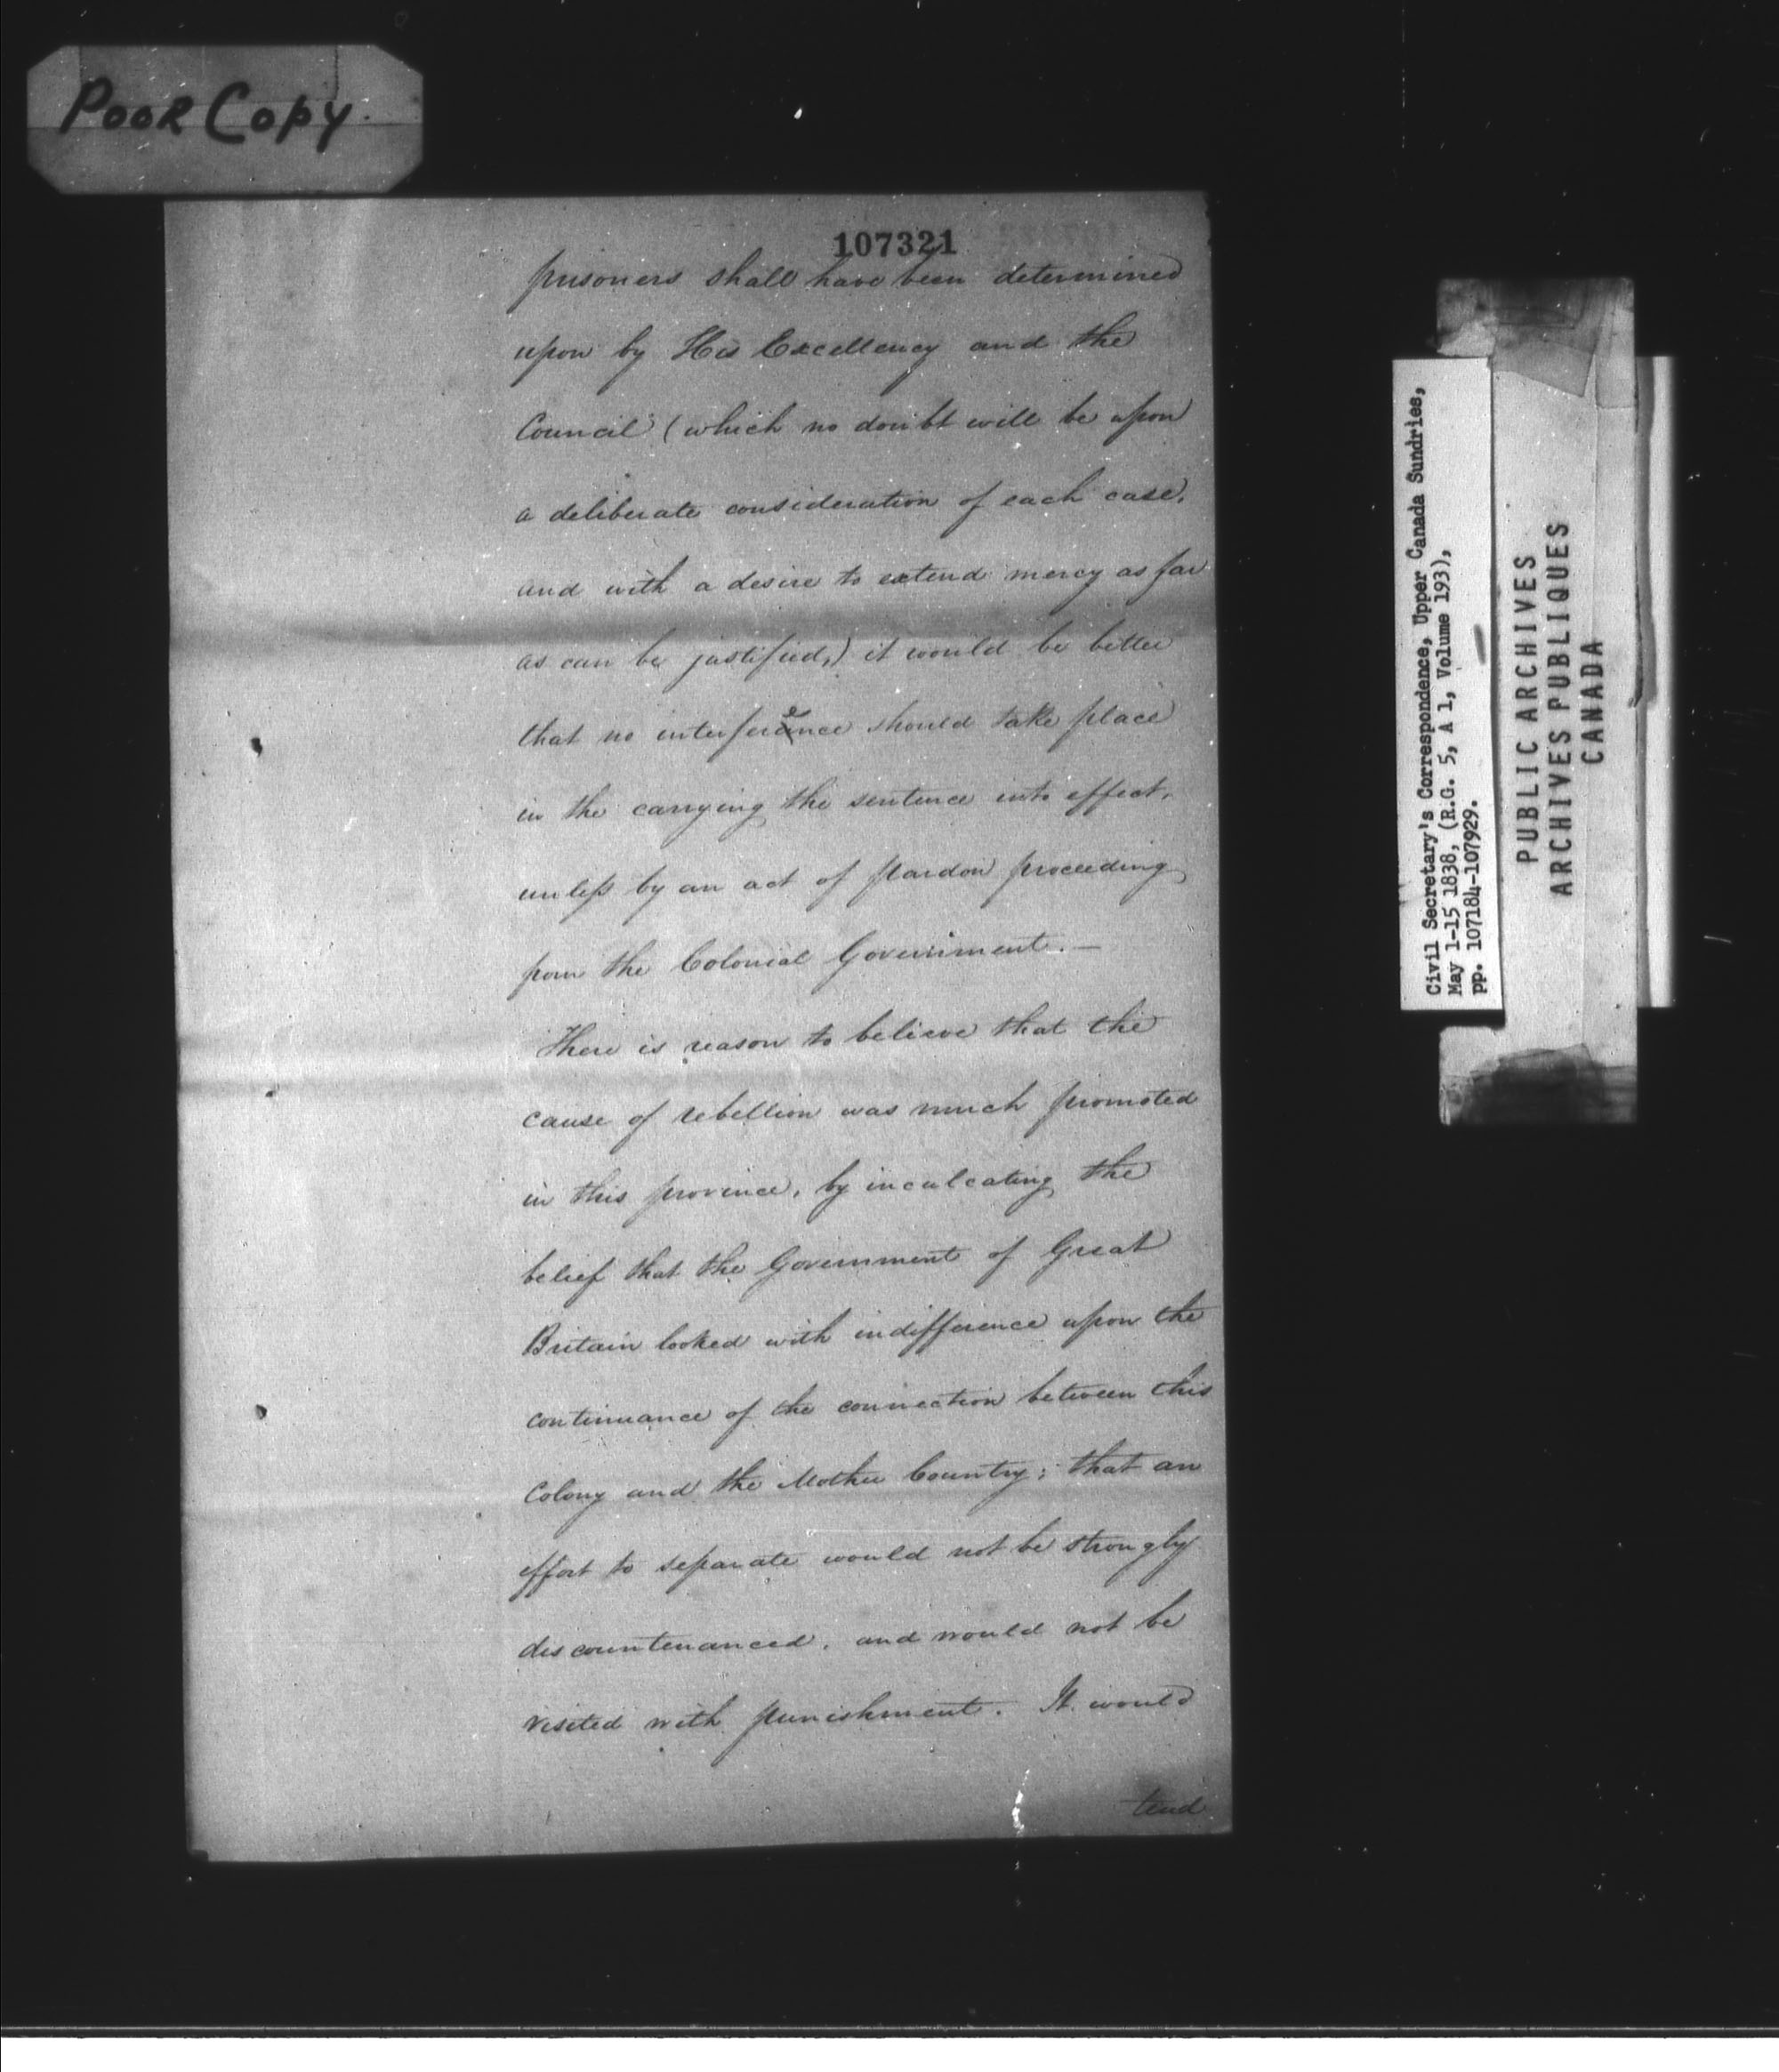 Poor Copy.
107321
prisoners shall have been determined
upon by His Excellency and the
Council (which no doubt will be upon
a deliberate consideration of each case,
and with a desire to extend mercy as far
as can be justified,) it would be better
that no interference should take place
in the carrying the sentence into effect,
unless by an act of pardon proceeding
from the Colonial Government. —
There is reason to believe that the
cause of rebellion was much promoted
in this province, by inculcating the
belief that the Government of Great
Britain looked with indifference upon the
continuance of the connection between this
Colony and the Mother Country; that an
effort to separate would not be strongly
discountenanced, and would not be
visited with punishment. It would
tend
Civil Secretary's Correspondence, Upper Canada Sundries,
May 1-15 1838, (R.G. 5, A 1, Volume 193),
pp. 107184-107929.
PUBLIC ARCHIVES
ARCHIVES PUBLIQUES
CANADA